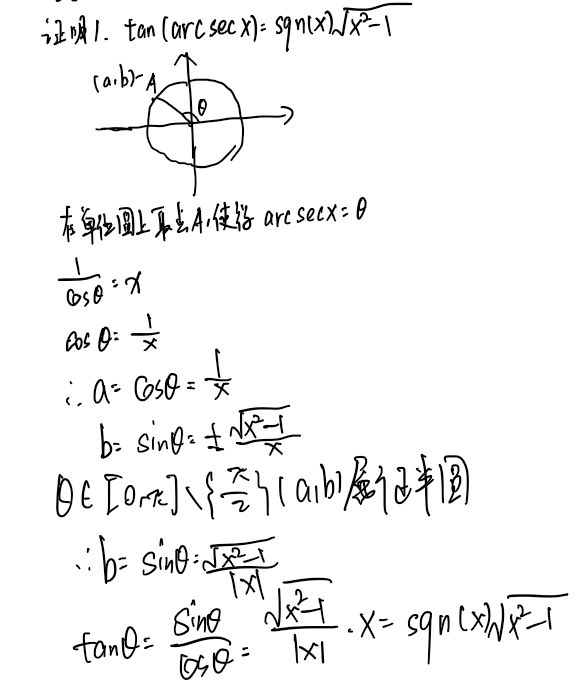 证明1. tan(arcsecx)=sgn(x)√(x²-1)
(a,b)-A
θ
在单位圆上取点A,使得 arcsecx=θ
1/cosθ=x
cosθ=1/x
∴a=cosθ=1/x
b=sinθ=±√(x²-1)/x
θ∈[0,π]\{π/2}(a,b)属于上半圆
∴b=sinθ=√(x²-1)/|x|
tanθ=sinθ/cosθ=√(x²-1)/|x|·x=sgn(x)√(x²-1)